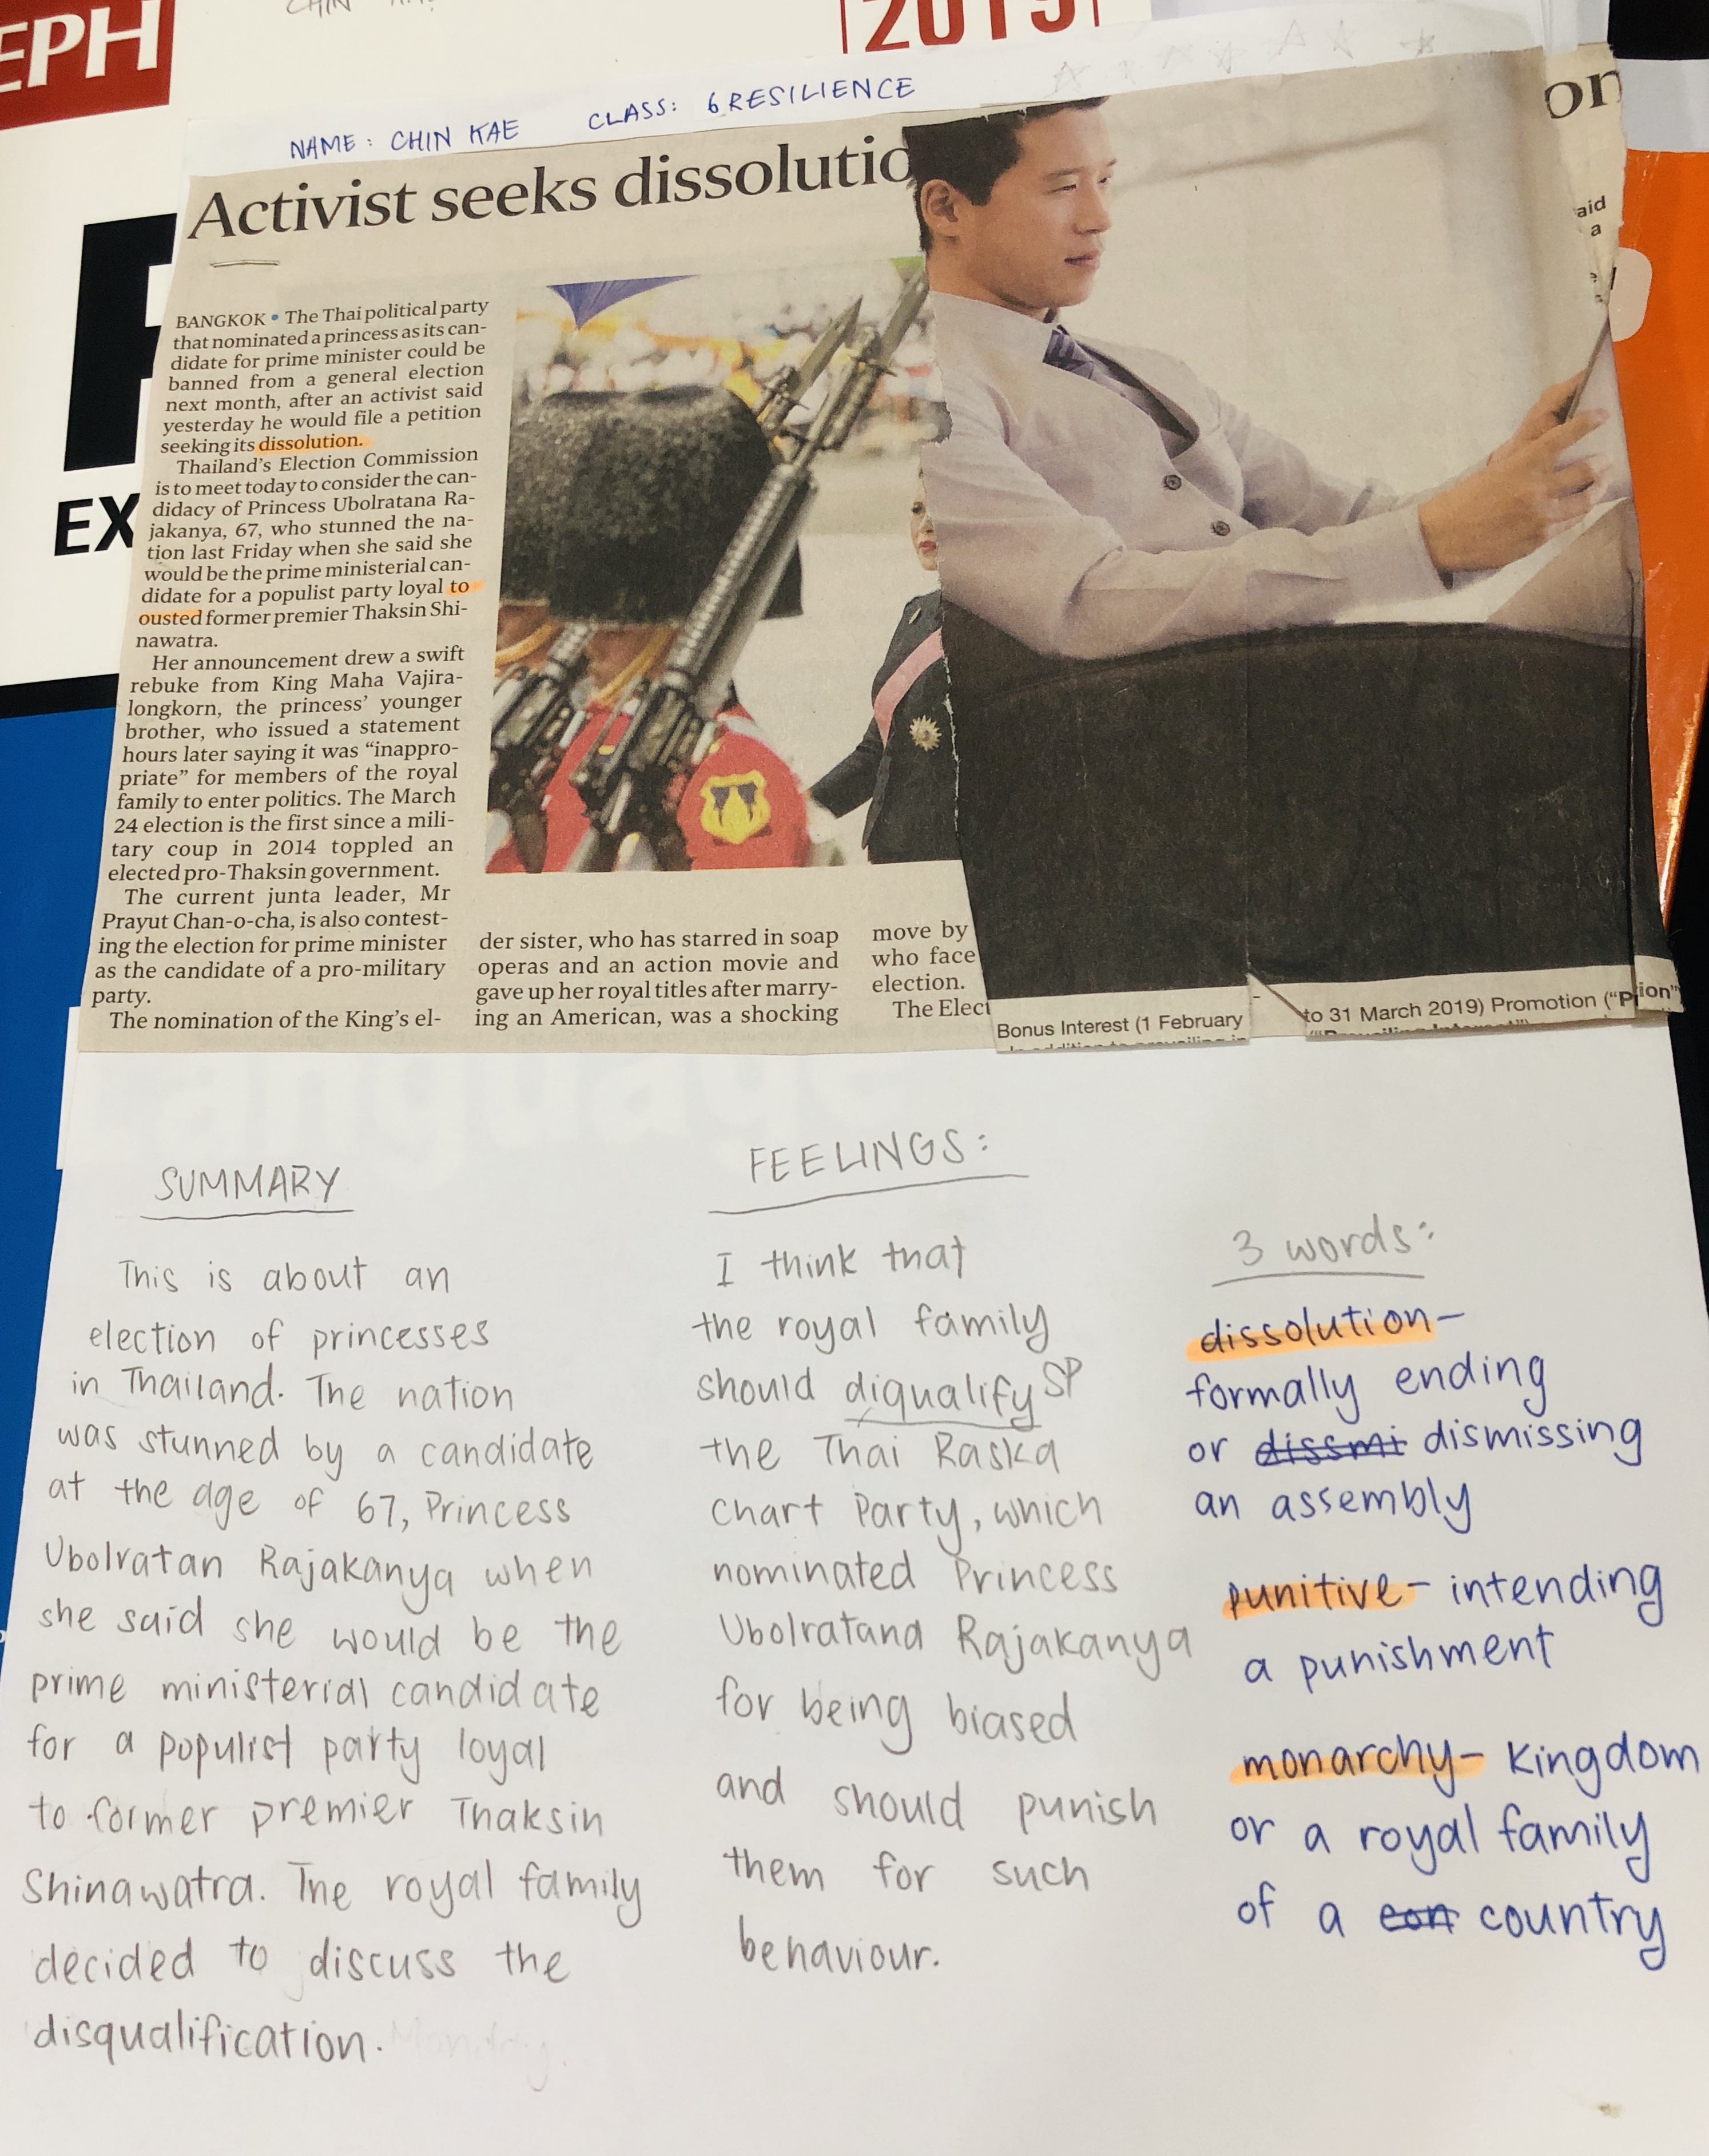 EPH
CHIN
2019
NAME: CHIN KAE CLASS: 6 RESILIENCE
Activist seeks dissolutio
on
aid
a
EX
BANGKOK • The Thai political party
that nominated a princess as its can-
didate for prime minister could be
banned from a general election
next month, after an activist said
yesterday he would file a petition
seeking its dissolution.
Thailand's Election Commission
is to meet today to consider the can-
didacy of Princess Ubolratana Ra-
jakanya, 67, who stunned the na-
tion last Friday when she said she
would be the prime ministerial can-
didate for a populist party loyal to
ousted former premier Thaksin Shi-
nawatra.
Her announcement drew a swift
rebuke from King Maha Vajira-
longkorn, the princess' younger
brother, who issued a statement
hours later saying it was "inappro-
priate" for members of the royal
family to enter politics. The March
24 election is the first since a mili-
tary coup in 2014 toppled an
elected pro-Thaksin government.
The current junta leader, Mr
Prayut Chan-o-cha, is also contest-
ing the election for prime minister
as the candidate of a pro-military
party.
The nomination of the King's el-
der sister, who has starred in soap
operas and an action movie and
gave up her royal titles after marry-
ing an American, was a shocking
move by
who face
election.
The Elect
Bonus Interest (1 February
to 31 March 2019) Promotion ("P
ion"
SUMMARY
This is about an
election of princesses
in Thailand. The nation
was stunned by a candidate
at the age of 67, Princess
Ubolratan Rajakanya when
she said she would be the
prime ministerial candidate
for a populist party loyal
to former premier Thaksin
Shinawatra. The royal family
decided to discuss the
disqualification.
FEELINGS:
I think that
the royal family
should diqualify SP
the Thai Raska
Chart Party, which
nominated Princess
Ubolratana Rajakanya
for being biased
and should punish
them for such
behaviour.
3 words:
dissolution-
formally ending
or dissmi dismissing
an assembly
punitive - intending
a punishment
monarchy- kingdom
or a royal family
of a con country